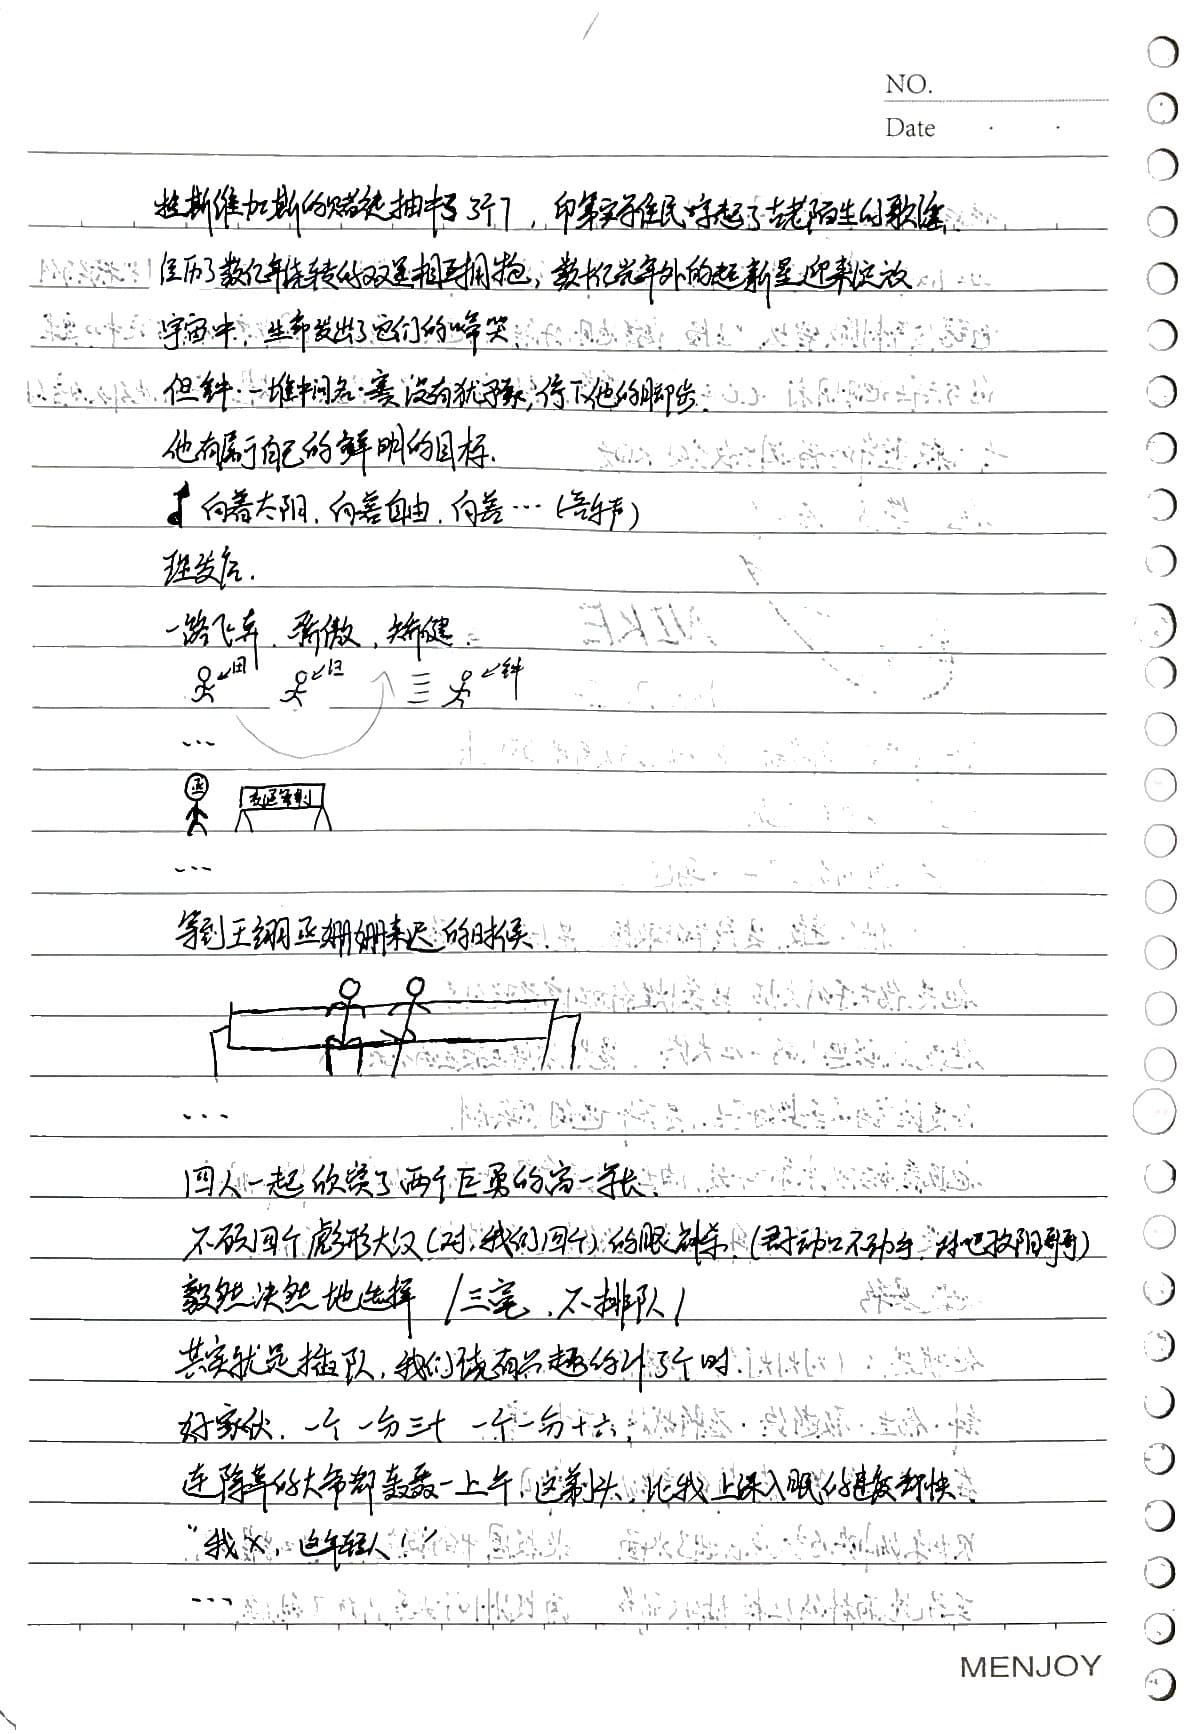 NO.
Date
拉斯维加斯的赌徒抽中了3个7，印第安住民哼起了古老陌生的歌谣，
经历了数亿年旋转的双星相互拥抱，数十亿光年外的超新星迎来绽放
宇宙中，生命发出了它们的啼哭
但钟·一堆中间名·赛没有犹豫，停下他的脚步.
他有属于自己的鲜明的目标.
向着太阳，向着自由，向着…（音乐声）
理发店.
一路飞奔，骄傲，矫健.
田 钟
…
丞
…
等到王翊丞姗姗来迟的时候.
…
四人一起欣赏了两个巨勇的高一学长.
不顾四个彪形大汉（对，我们四个）的眼神杀.（君子动口不动手，对吧 阳哥哥）
毅然决然地选择 /三毫，不排队/
其实就是插队，我们饶有兴趣的计了个时.
好家伙，一个一分三十 一个一分十六；
连除草的大爷都轰轰一上午，这剃头，比我上课入眠的速度都快.
“我×，这年轻人！”
…
MENJOY